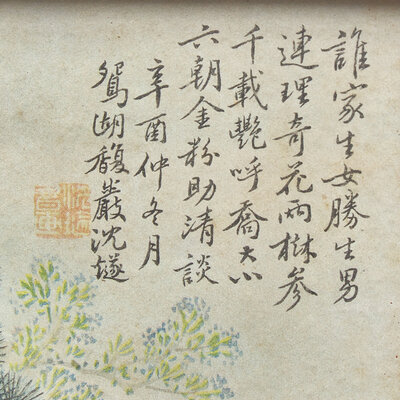 誰家生女勝生男
連理奇花兩樹參
千載艷呼喬大小
六朝金粉助清談
辛酉仲冬月
鴛湖馥巖沈燧